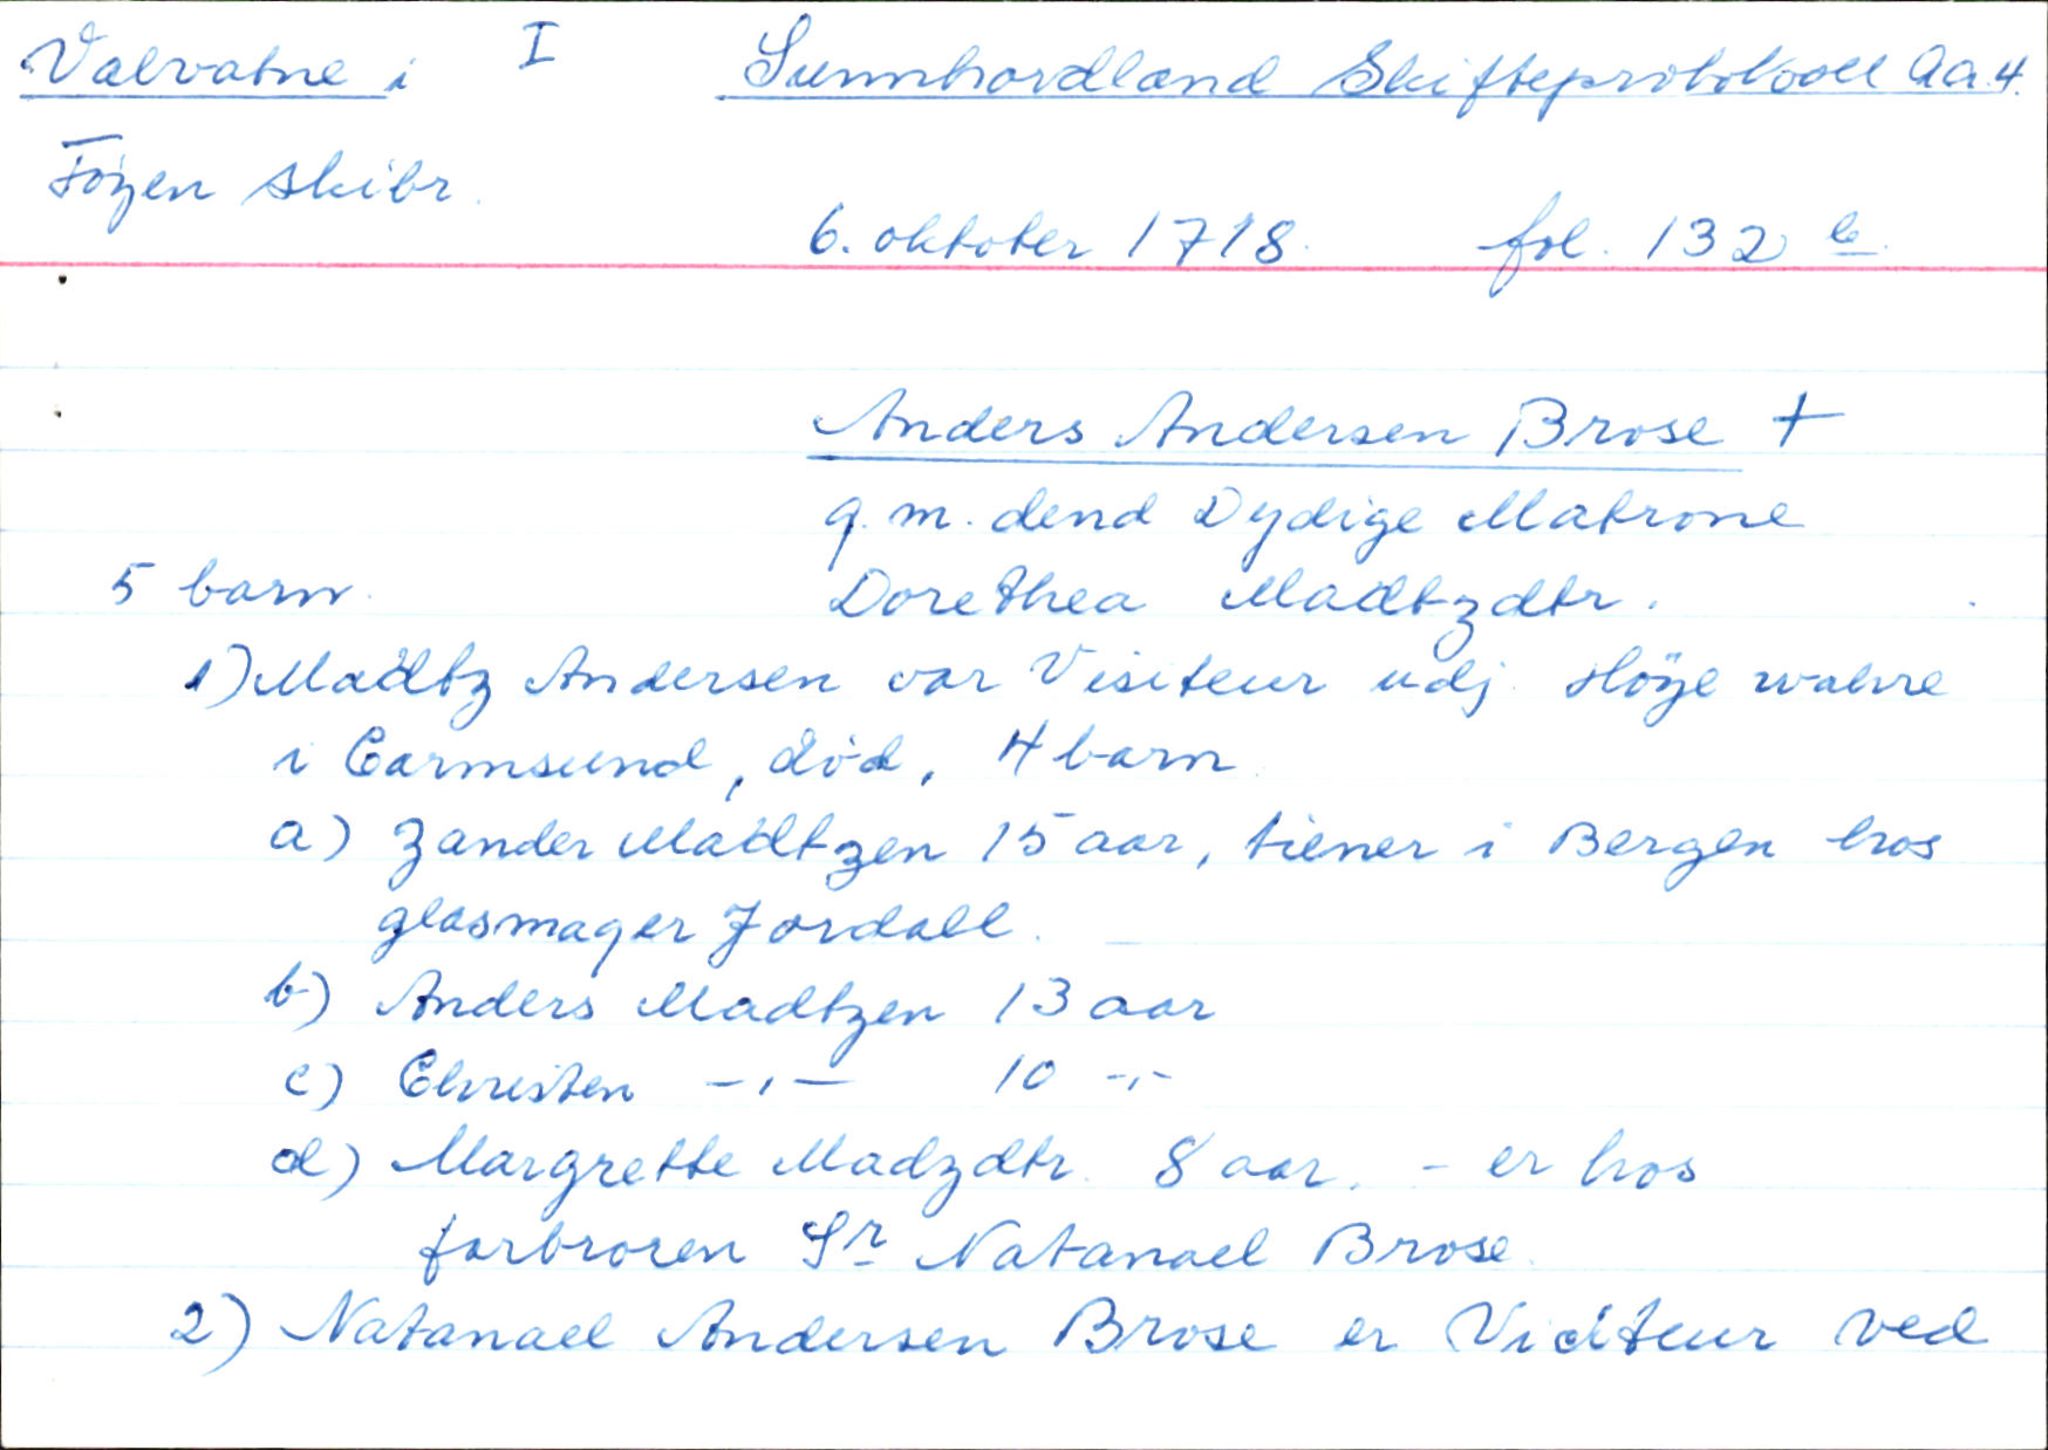 Valvatne i I Sunnhordland Skifteprotokoll Aa.4.
Føyen skibr.
6. oktober 1718. fol. 132 b.
Anders Andersen Brose +
g. m. dend Dydige Matrone
5 barn. Dorethea Madtzdtr.
1) Madtz Andersen var Visiteur udj Höye wahre
i Carmsund, død, 4 barn.
a) Zander Madtzen 15 aar, tiener i Bergen hos
glasmager Jordall.
b) Anders Madtzen 13 aar
c) Christen -,- 10 -,-
d) Margrette Madzdtr. 8 aar. - er hos
farbroren Sr Natanael Brose.
2) Natanael Andersen Brose er Viciteur ved